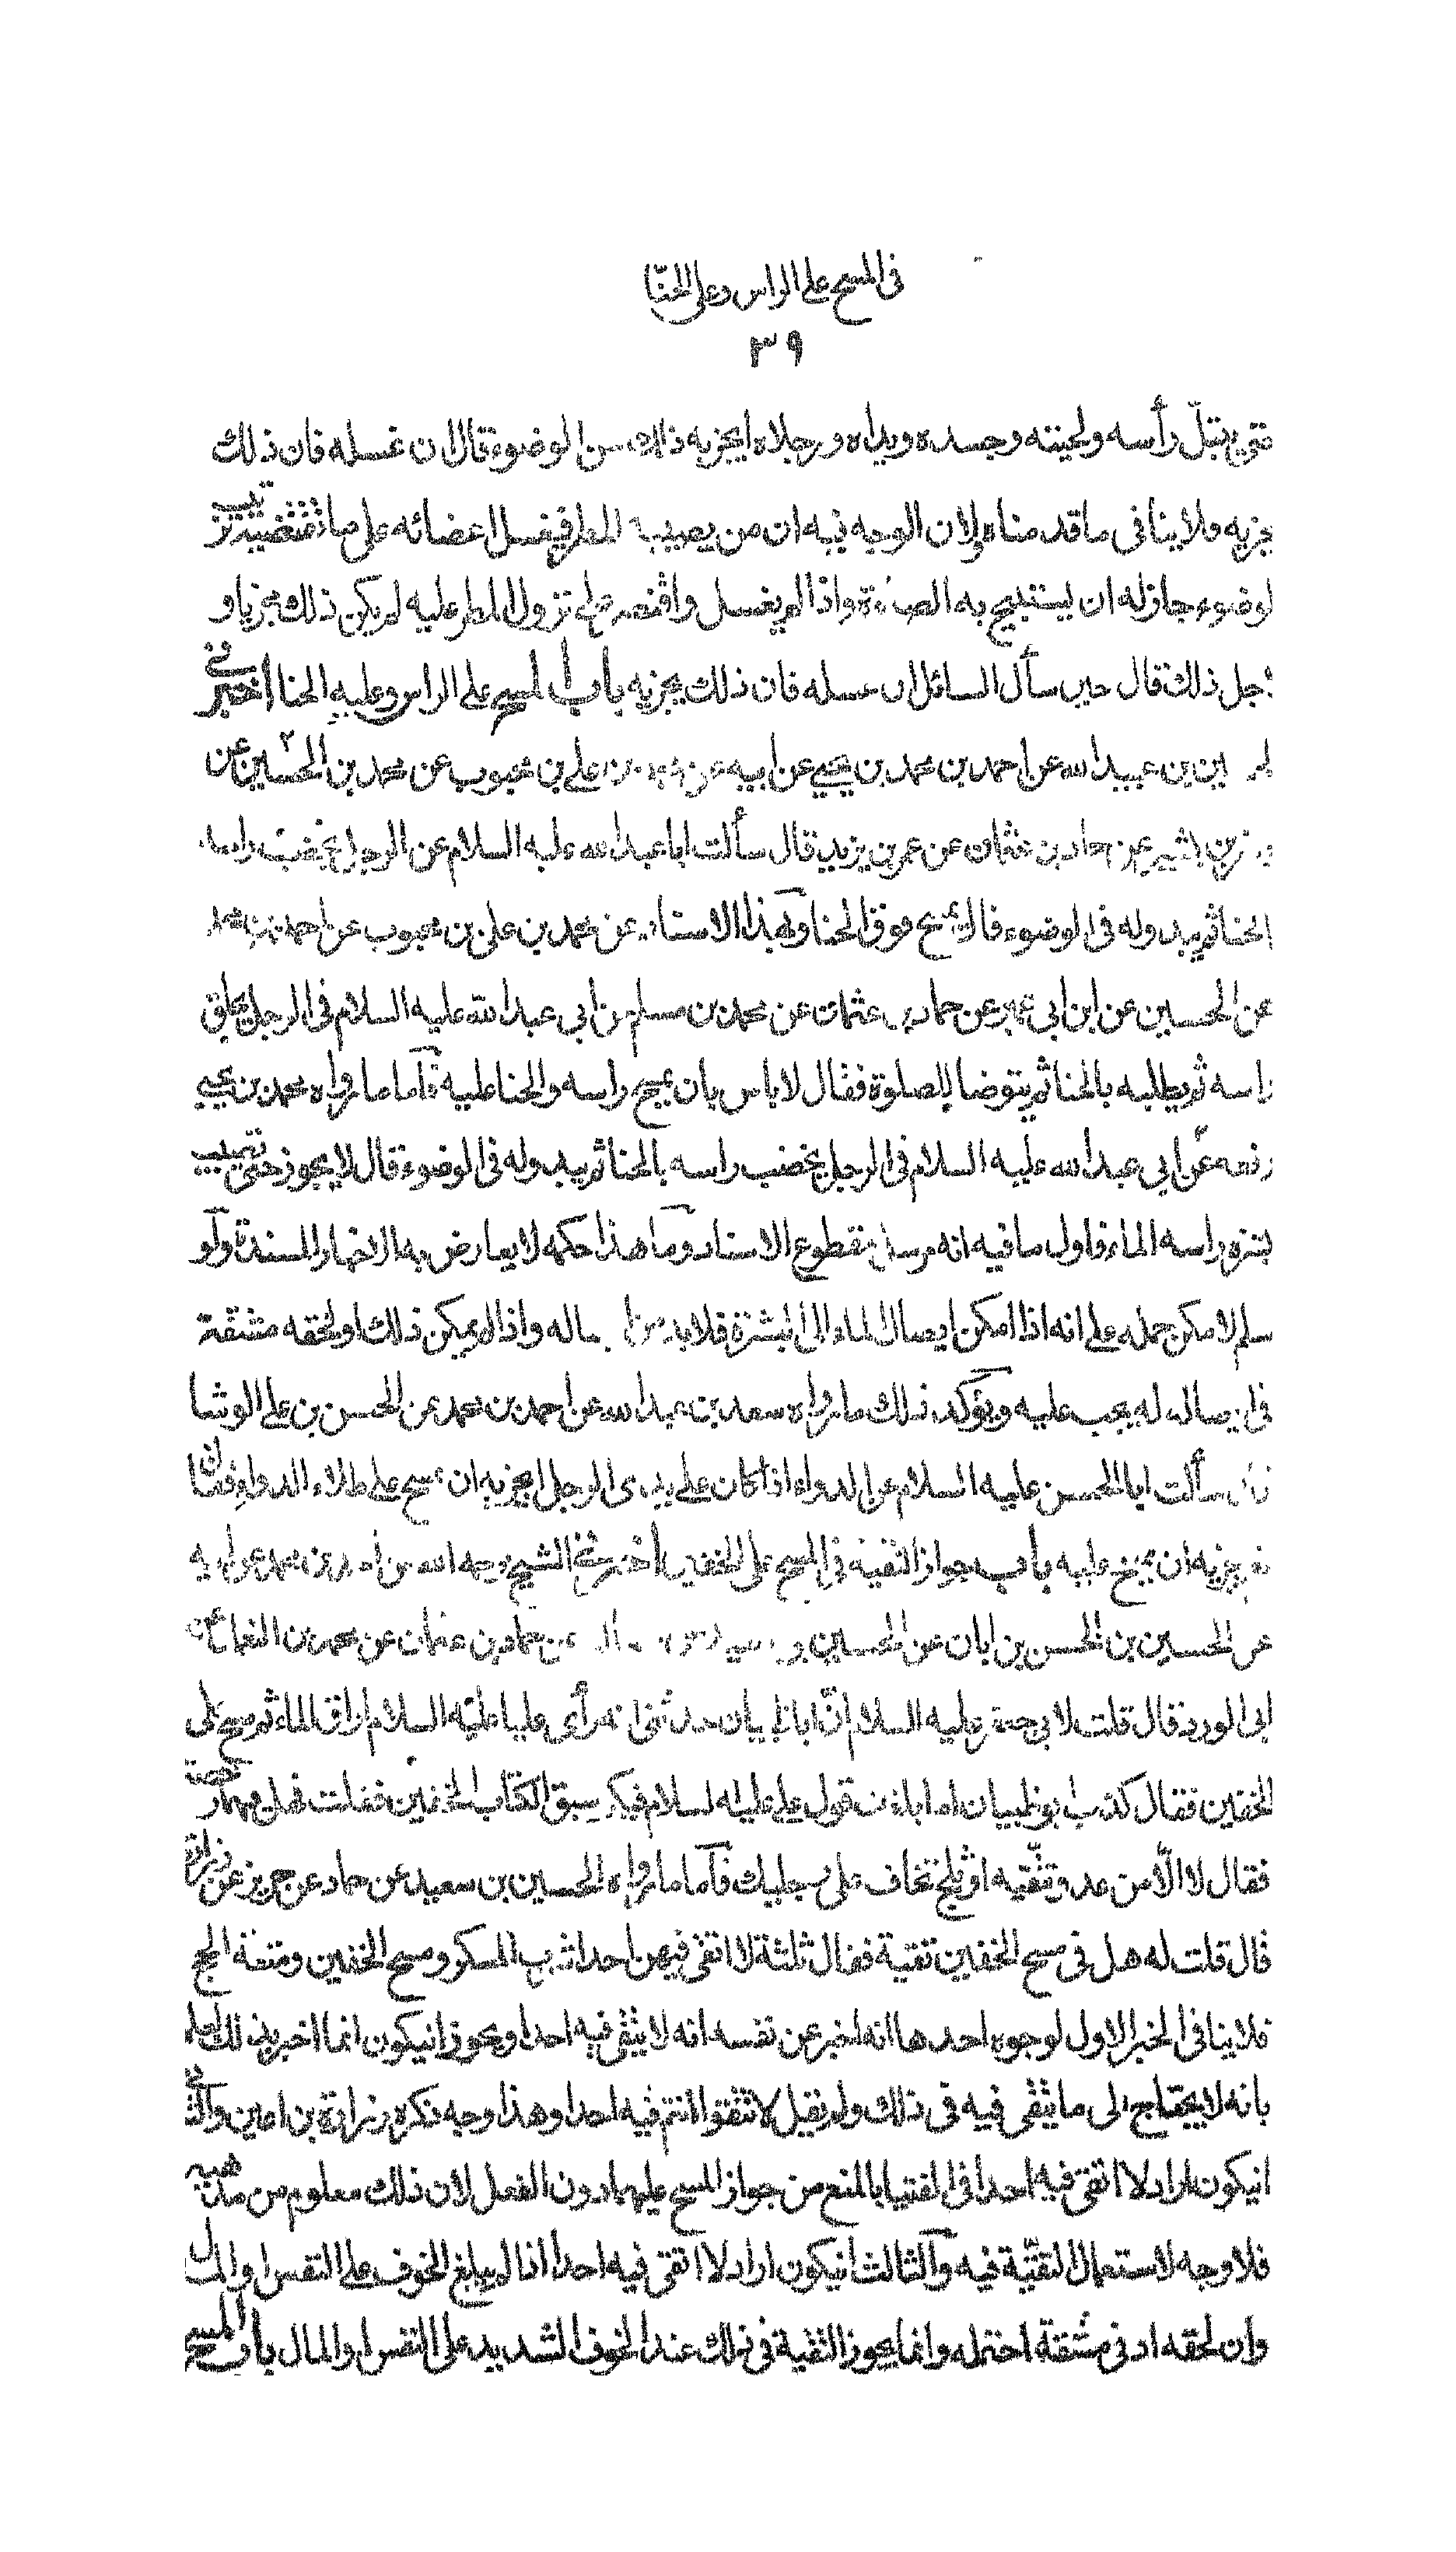 فى المسح على الراس وعلى الحنّا
٣٩
حتى يبتلّ رأسه ولحيته وجسده ويداه ورجلاه ايجزيه ذلك من الوضوء قال ان غسله فان ذلك
يجزيه ولا ينافى ما قدمناه لان الوجه فيه ان من يصيبه المطر فيغسل اعضائه على ما تقتضيه ترتيب
لوضوء جاز له ان يستبيح به الصلوة واذا لم يغسل واقتصر على نزول المطر عليه لم يكن ذلك مجزيا و
لاجل ذلك قال حين سأل السائل ان غسله فان ذلك يجزيه باب المسح على الراس وعليه الحنا اخبرنى
الحسين بن عبيد الله عن احمد بن محمد بن يحيى عن ابيه عن محمد بن على بن محبوب عن محمد بن الحسين عن
جعفر بن بشير عن حماد بن عثمان عن عمر بن يزيد قال سألت ابا عبد الله عليه السلام عن الرجل يخضب راسه
بالحنا ثم يبدو له فى الوضوء قال يمسح فوق الحنا وبهذا الاسناد عن محمد بن على بن محبوب عن احمد بن محمد
عن الحسين عن ابن ابى عمير عن حماد بن عثمان عن محمد بن مسلم عن ابى عبد الله عليه السلام فى الرجل يحلق
راسه ثم يطليه بالحنا ثم يتوضا للصلوة فقال لا باس بان يمسح راسه والحنا عليه فاما ما رواه محمد بن يحيى
رفعه عن ابى عبد الله عليه السلام فى الرجل يخضب راسه بالحنا ثم يبدو له فى الوضوء قال لا يجوز حتى يصيب
بشرة راسه الماء فاول ما فيه انه مرسل مقطوع الاسناد وما هذا حكمه لا يعارض به الاخبار المسندة ولو
سلم لامكن حمله على انه اذا امكن ايصال الماء الى البشرة فلا بد من ايصاله واذا لم يمكن ذلك او لحقه مشقة
فى ايصاله لم يجب عليه ويؤكد ذلك ما رواه سعد بن عبد الله عن احمد بن محمد عن الحسن بن على الوشا
قال سألت ابا الحسن عليه السلام عن الدواء اذا كان على يدى الرجل ايجزيه ان يمسح على طلاء الدواء فقال
نعم يجزيه ان يمسح عليه باب جواز التقية فى المسح على الخفين اخبرنى الشيخ رحمه الله عن احمد بن محمد عن ابيه
عن الحسين بن الحسن بن ابان عن الحسين بن سعيد عن حماد بن عثمان عن محمد بن النعمان عن
ابى الورد قال قلت لابى جعفر عليه السلام انّ ابا ظبيان حدثنى انه رأى عليا عليه السلام اراق الماء ثم مسح على
الخفين فقال كذب ابو ظبيان اما بلغك قول على عليه السلام فيكم سبق الكتاب الخفين فقلت فهل فيهما رخصة
فقال لا الّا من عدو تتّقيه او ثلج تخاف على رجليك فاما ما رواه الحسين بن سعيد عن حماد عن حريز عن زرارة
قال قلت له هل فى مسح الخفين تقية فقال ثلثة لا اتقى فيهن احدا شرب المسكر ومسح الخفين ومتعة الحج
فلا ينافى الخبر الاول لوجوه احدها انه اخبر عن نفسه انه لا يتقى فيه احدا ويجوز ان يكون انما اخبر بذلك لعلمه
بانه لا يحتاج الى ما يتقى فيه فى ذلك ولم يقل لا تتقوا انتم فيه احدا وهذا وجه ذكره زرارة بن اعين والثانى
ان يكون اراد لا اتقى فيه احدا فى الفتيا بالمنع من جواز المسح عليهما دون الفعل لان ذلك معلوم من مذهبه
فلا وجه لاستعمال التقيّة فيه والثالث ان يكون اراد لا اتقى فيه احدا اذا لم يبلغ الخوف على النفس او المال
وان لحقه ادنى مشقة احتمله وانما يجوز التقية فى ذلك عند الخوف الشديد على النفس او المال باب المسح